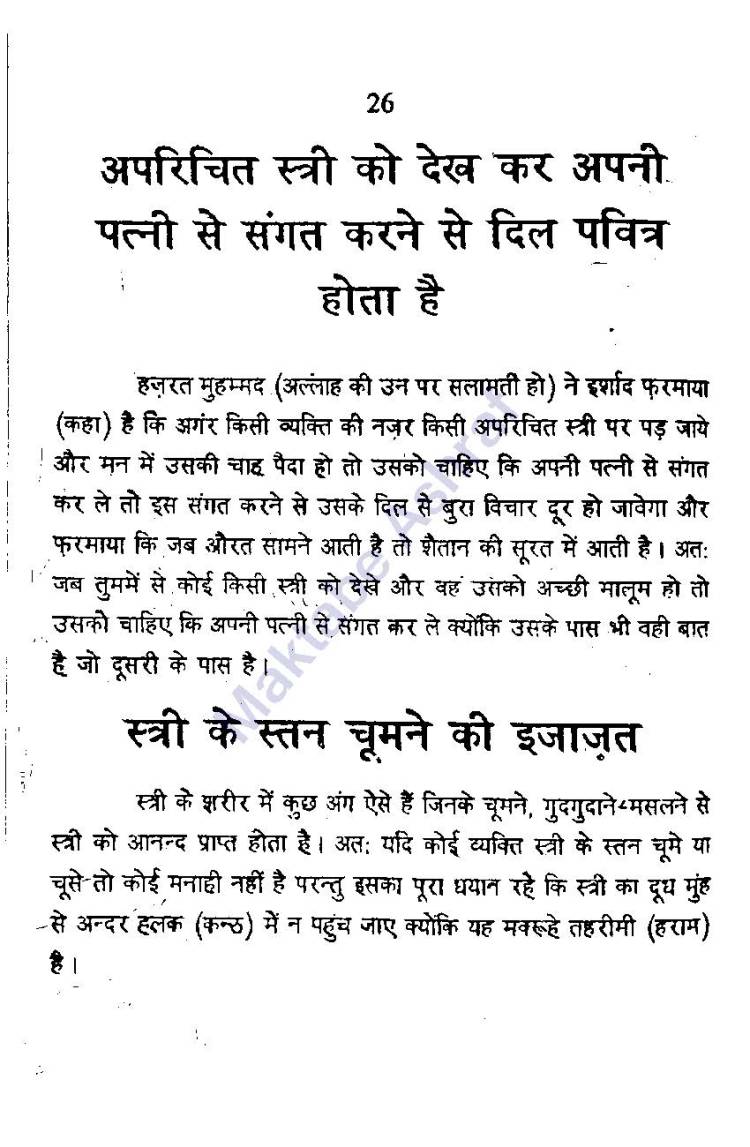 26
अपरिचित स्त्री को देख कर अपनी
पत्नी से संगत करने से दिल पवित्र
होता है
हज़रत मुहम्मद (अल्लाह की उन पर सलामती हो) ने इर्शाद फ़रमाया
(कहा) है कि अगर किसी व्यक्ति की नज़र किसी अपरिचित स्त्री पर पड़ जाये
और मन में उसकी चाह पैदा हो तो उसको चाहिए कि अपनी पत्नी से संगत
कर ले तो इस संगत करने से उसके दिल से बुरा विचार दूर हो जावेगा और
फ़रमाया कि जब औरत सामने आती है तो शैतान की सूरत में आती है। अतः
जब तुममें से कोई किसी स्त्री को देखे और वह उसको अच्छी मालूम हो तो
उसको चाहिए कि अपनी पत्नी से संगत कर ले क्योंकि उसके पास भी वही बात
है जो दूसरी के पास है।
स्त्री के स्तन चूमने की इजाज़त
स्त्री के शरीर में कुछ अंग ऐसे हैं जिनके चूमने, गुदगुदाने-मसलने से
स्त्री को आनन्द प्राप्त होता है। अतः यदि कोई व्यक्ति स्त्री के स्तन चूमे या
चूसे तो कोई मनाही नहीं है परन्तु इसका पूरा धयान रहे कि स्त्री का दूध मुंह
से अन्दर हलक़ (कन्ठ) में न पहुंच जाए क्योंकि यह मक्रूहे तहरीमी (हराम)
है।
Maktabe Ashraf